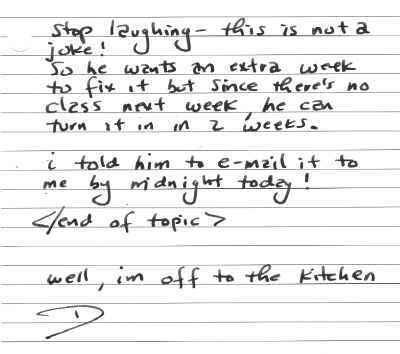 stop laughing - this is not a
joke!
So he wants an extra week
to fix it but since there's no
class next week, he can
turn it in in 2 weeks.
i told him to e-mail it to
me by midnight today!
</end of topic>
well, im off to the kitchen
D